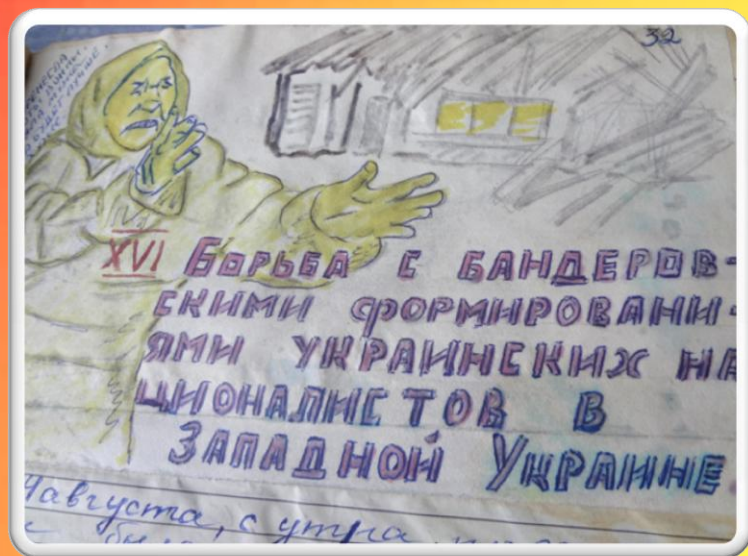 32
XVI Борьба с бандеров-
скими формировани-
ями украинских на
ционалистов в
Западной Украине.
августа, с утра